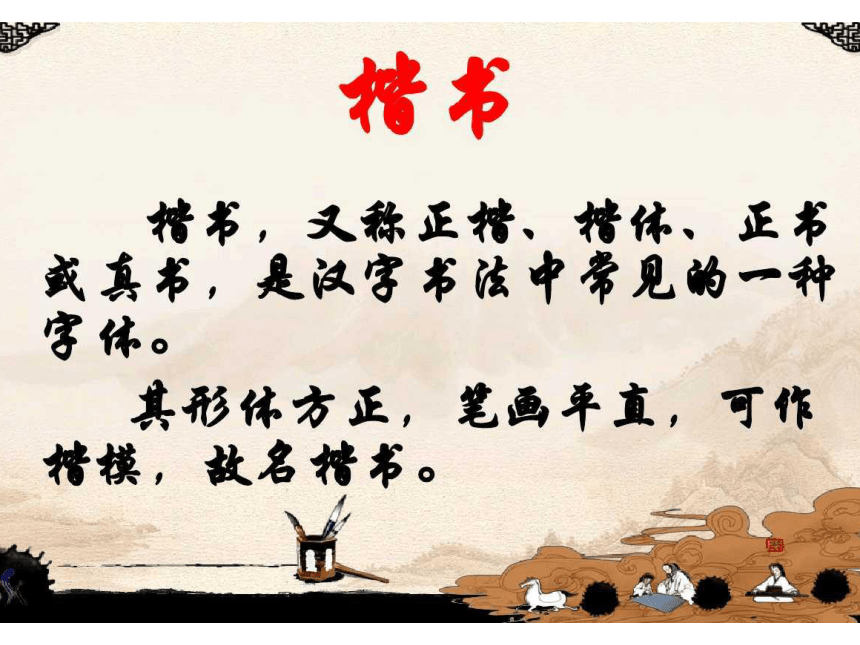 楷书
楷书，又称正楷、楷体、正书
或真书，是汉字书法中常见的一种
字体。
其形体方正，笔画平直，可作
楷模，故名楷书。